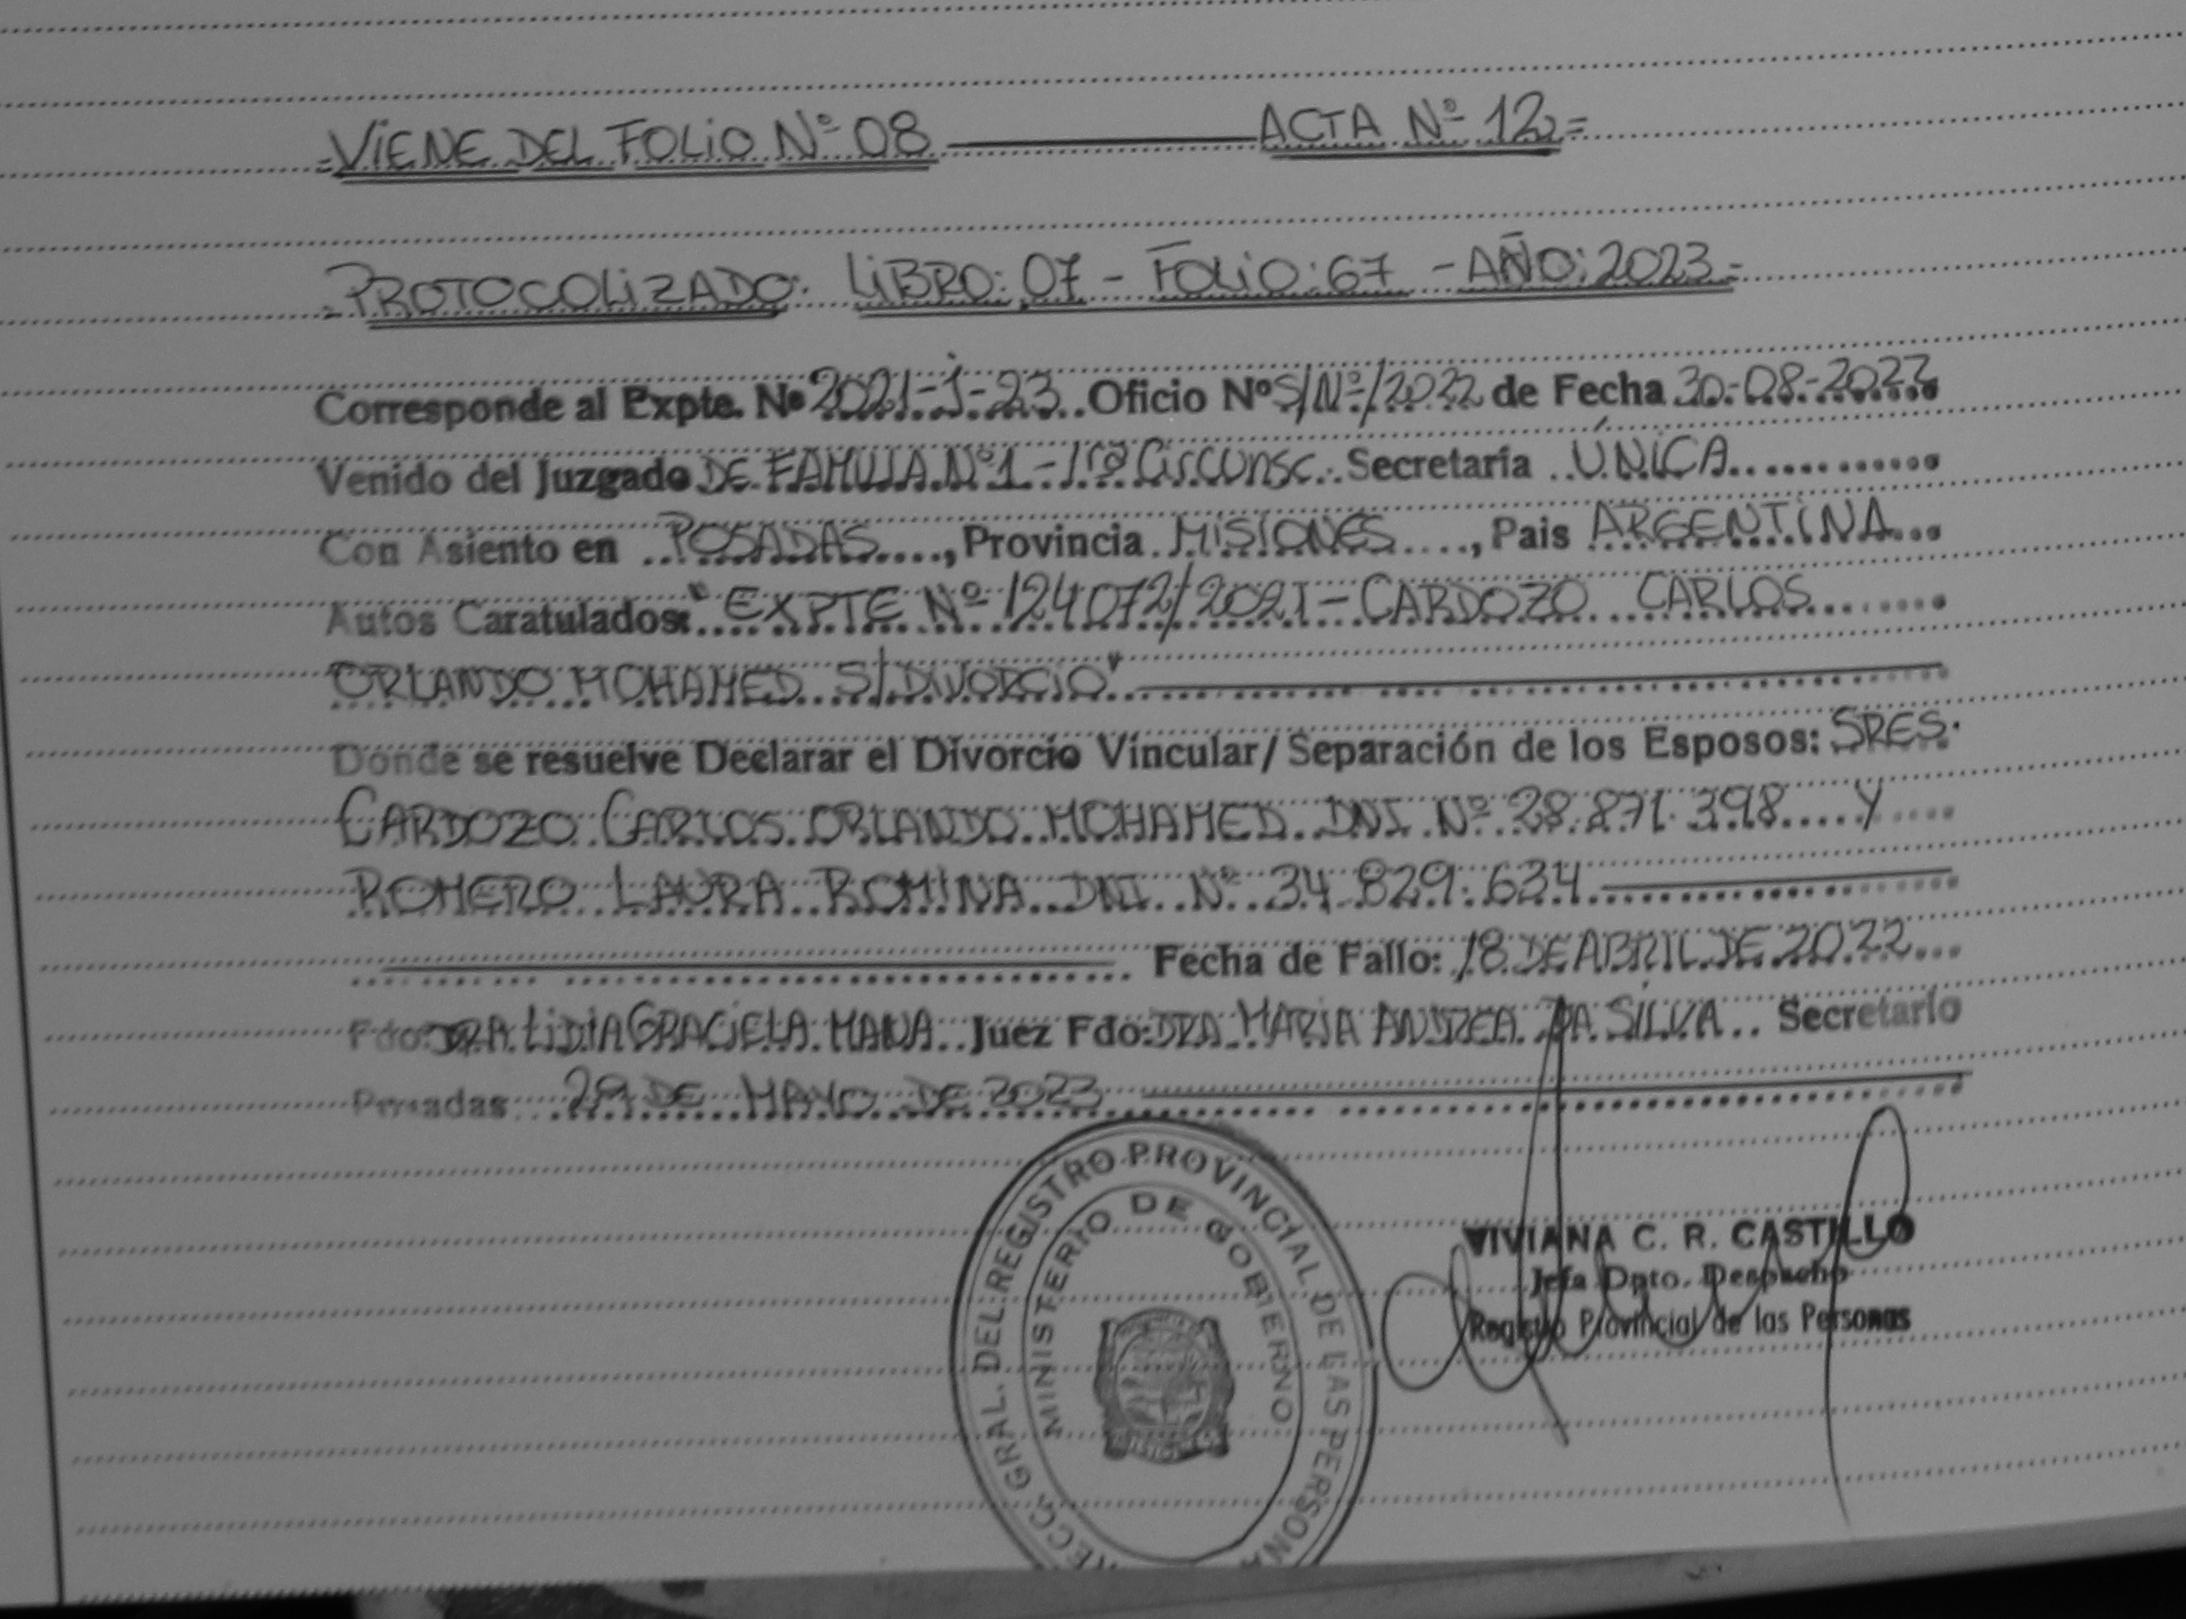 =VIENE DEL FOLIO Nº 08 ACTA Nº 12=
=PROTOCOLIZADO: LIBRO: 07 - FOLIO: 67 - AÑO: 2023=
Corresponde al Expte. Nº 2021-J-23 Oficio Nº S/Nº/2022 de Fecha 30-08-2022
Venido del Juzgado DE FAMILIA Nº 1 - 1ra Circunsc. Secretaría ÚNICA
Con Asiento en POSADAS, Provincia MISIONES, Pais ARGENTINA
Autos Caratulados: "EXPTE Nº 124072/2021 - CARDOZO CARLOS
ORLANDO MOHAMED S/ DIVORCIO"
Donde se resuelve Declarar el Divorcio Vincular/ Separación de los Esposos: SRES.
CARDOZO CARLOS ORLANDO MOHAMED DNI Nº 28.871.398 Y
ROMERO LAURA ROMINA DNI Nº 34.829.634
Fecha de Fallo: 18 DE ABRIL DE 2022
Fdo: DRA LIDIA GRACIELA Juez Fdo: DRA MARIA ANDREA DA SILVA Secretario
Posadas 29 DE MAYO DE 2023
GRAL. DEL REGISTRO PROVINCIAL DE LAS
MINISTERIO DE GOBIERNO
VIVIANA C. R. CASTILLO
Jefa Dpto. Despacho
Registro Provincial de las Personas